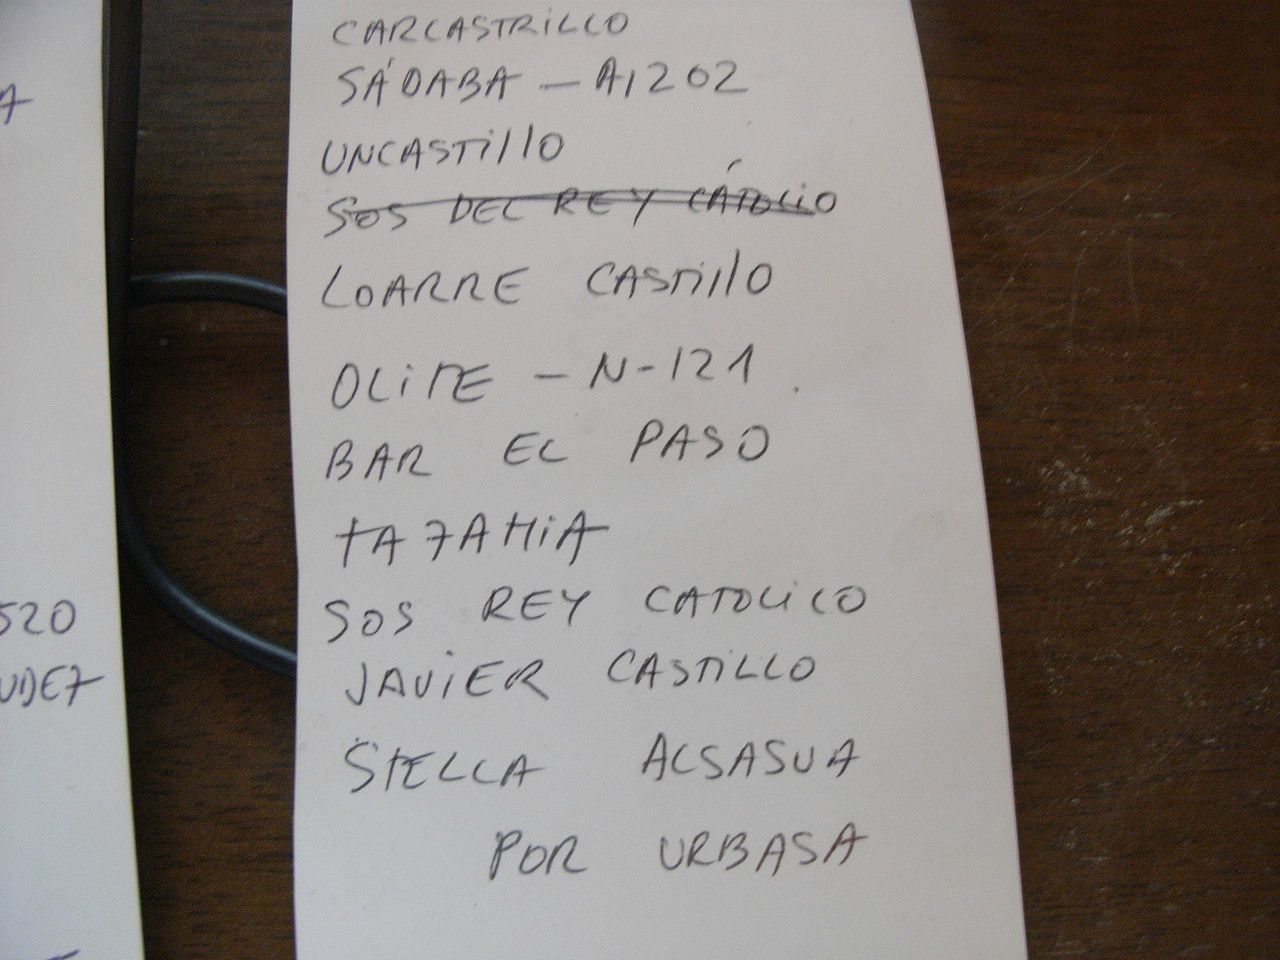 CARCASTRILLO
SÁDABA - A1202
UNCASTillO
SOS DEL REY CÁTOLIO
LOARRE CASTillO
OLITE - N-121
BAR EL PASO
SOS REY CATOLICO
JAVIER CASTILLO
STELLA ALSASUA
POR URBASA
520